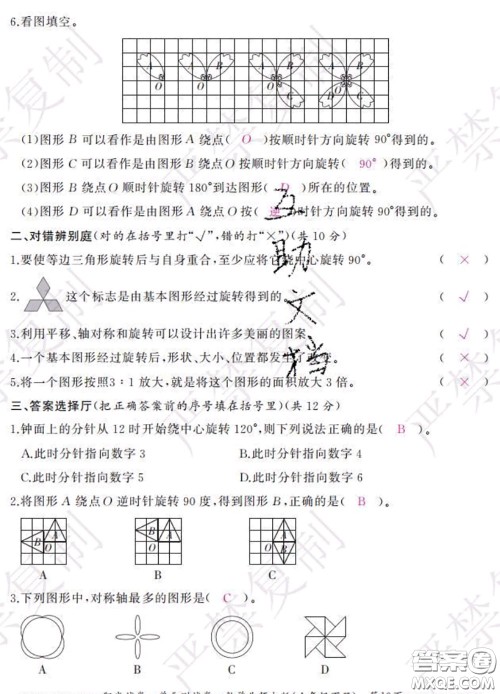 6.看图填空。
A O
A B O
A B O C
A B O D C
(1)图形 B 可以看作是由图形 A 绕点( O )按顺时针方向旋转 90°得到的。
(2)图形 C 可以看作是由图形 B 绕点 O 按顺时针方向旋转( 90° )得到的。
(3)图形 B 绕点 O 顺时针旋转 180°到达图形( D )所在的位置。
(4)图形 D 可以看作是由图形 A 绕点 O 按( 逆 )时针方向旋转 90°得到的。
二、对错辨别庭(对的在括号里打“√”,错的打“×”)(共 10 分)
1.要使等边三角形旋转后与自身重合,至少应将它绕中心旋转 90°。 ( × )
2. 这个标志是由基本图形经过旋转得到的。 ( √ )
3.利用平移、轴对称和旋转可以设计出许多美丽的图案。 ( √ )
4.一个基本图形经过旋转后,形状、大小、位置都发生了改变。 ( × )
5.将一个图形按照3∶1 放大,就是将这个图形的面积放大 3 倍。 ( × )
三、答案选择厅(把正确答案前的序号填在括号里)(共 12 分)
1.钟面上的分针从 12 时开始绕中心旋转 120°,则下列说法正确的是( B )。
A.此时分针指向数字 3 B.此时分针指向数字 4
C.此时分针指向数字 5 D.此时分针指向数字 6
2.将图形 A 绕点 O 逆时针旋转 90 度,得到图形 B,正确的是( B )。
A B O
B A O
A O B
A B C
3.下列图形中,对称轴最多的图形是( C )。
A B C D
严禁复制
互助文档
答案圈
MXQE.COM